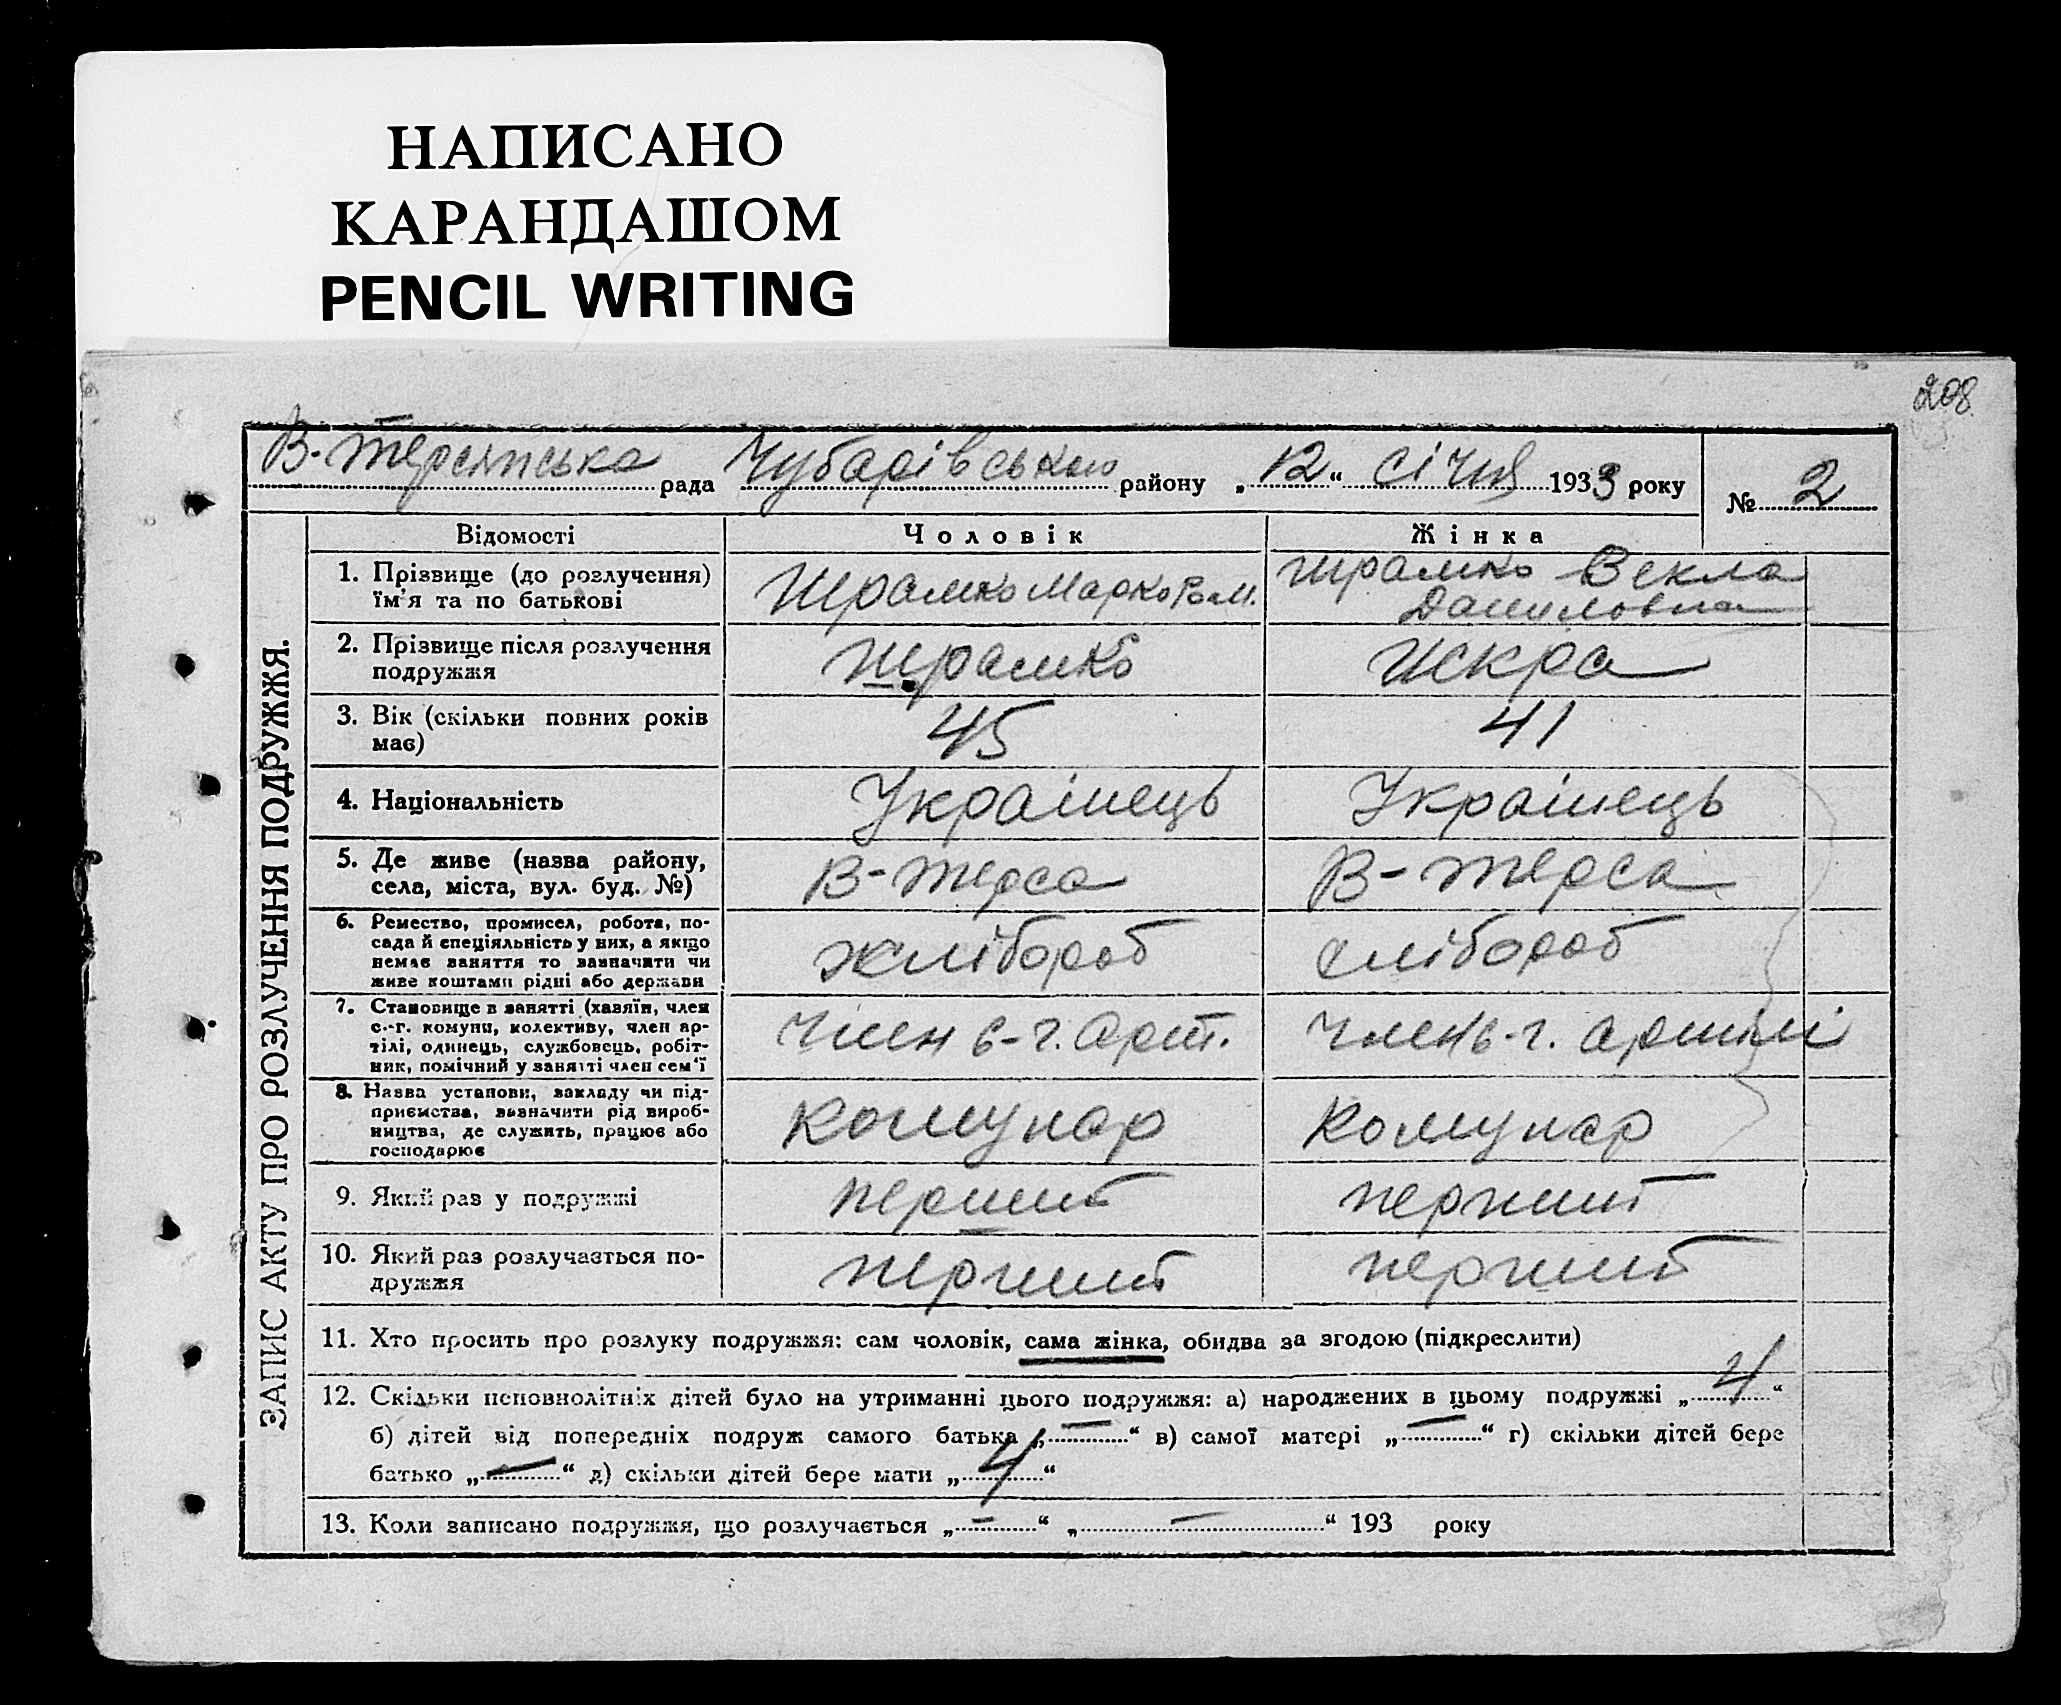 НАПИСАНО
КАРАНДАШОМ
PENCIL WRITING
208
В-Терсянська рада Чубарівського району „12“ січня 1933 року № 2
ЗАПИС АКТУ ПРО РОЗЛУЧЕННЯ ПОДРУЖЖЯ.
Відомості Чоловік Жінка
1. Прізвище (до розлучення) їм'я та по батькові Шрамко Марко Ром. Шрамко Векла Даниловна
2. Прізвище після розлучення подружжя Шрамко Искра
3. Вік (скільки повних років має) 45 41
4. Національність Українець Українець
5. Де живе (назва району, села, міста, вул. буд. №) В-Терса В-Терса
6. Ремество, промисел, робота, по-
сада й спеціяльність у них, а якщо
немає заняття то зазначити чи
живе коштами рідні або держави хлібороб хлібороб
7. Становище в занятті (хазяїн, член
с.-г. комуни, колективу, член ар-
тілі, одинець, службовець, робіт-
ник, помічний у занятті член сем'ї Член с-г. арт. Член с-г. артілі
8. Назва установи, закладу чи під-
приємства, визначити рід вироб-
ництва, де служить, працює або
господарює Комунар Комунар
9. Який раз у подружжі перший перший
10. Який раз розлучається по-
дружжя перший перший
11. Хто просить про розлуку подружжя: сам чоловік, сама жінка, обидва за згодою (підкреслити)
12. Скільки неповнолітніх дітей було на утриманні цього подружжя: а) народжених в цьому подружжі „4“
б) дітей від попередніх подруж самого батька „—“ в) самої матері „—“ г) скільки дітей бере
батько „—“ д) скільки дітей бере мати „4“
13. Коли записано подружжя, що розлучається „—“ „—“ 193 року